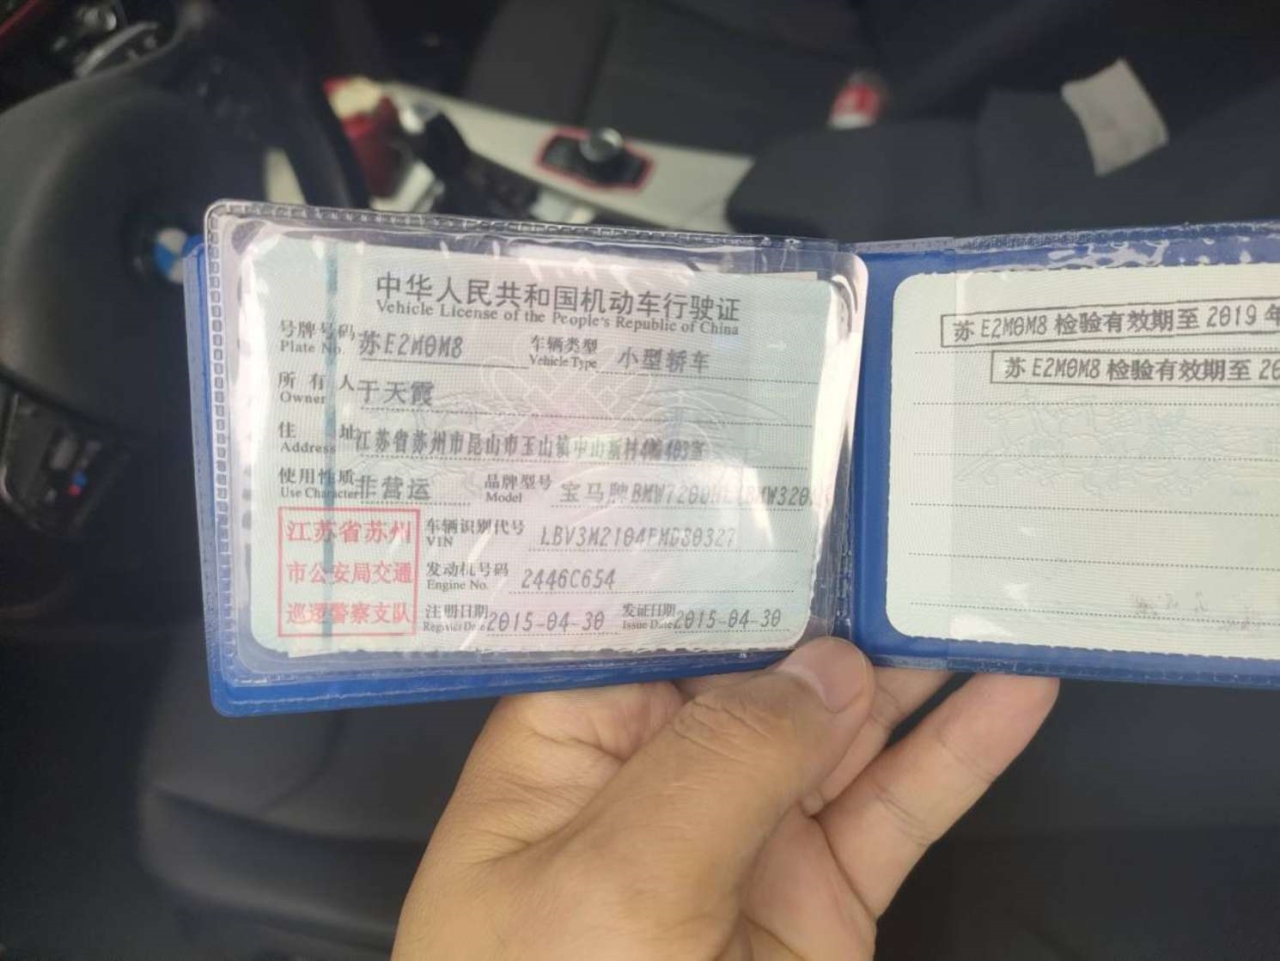 中华人民共和国机动车行驶证
Vehicle License of the People's Republic of China
号牌号码 苏E2M0M8 车辆类型 小型轿车
Plate No. Vehicle Type
所有人 于天霞
Owner
住址 江苏省苏州市昆山市玉山镇中山新村4幢403室
Address
使用性质 非营运 品牌型号 宝马牌BMW7200
Use Character Model
江苏省苏州
市公安局交通
巡逻警察支队
车辆识别代号 LBV3M2104FMD80327
VIN
发动机号码 2446C654
Engine No.
注册日期 2015-04-30 发证日期 2015-04-30
Register Date Issue Date
苏E2M0M8 检验有效期至 2019 年
苏E2M0M8 检验有效期至 20